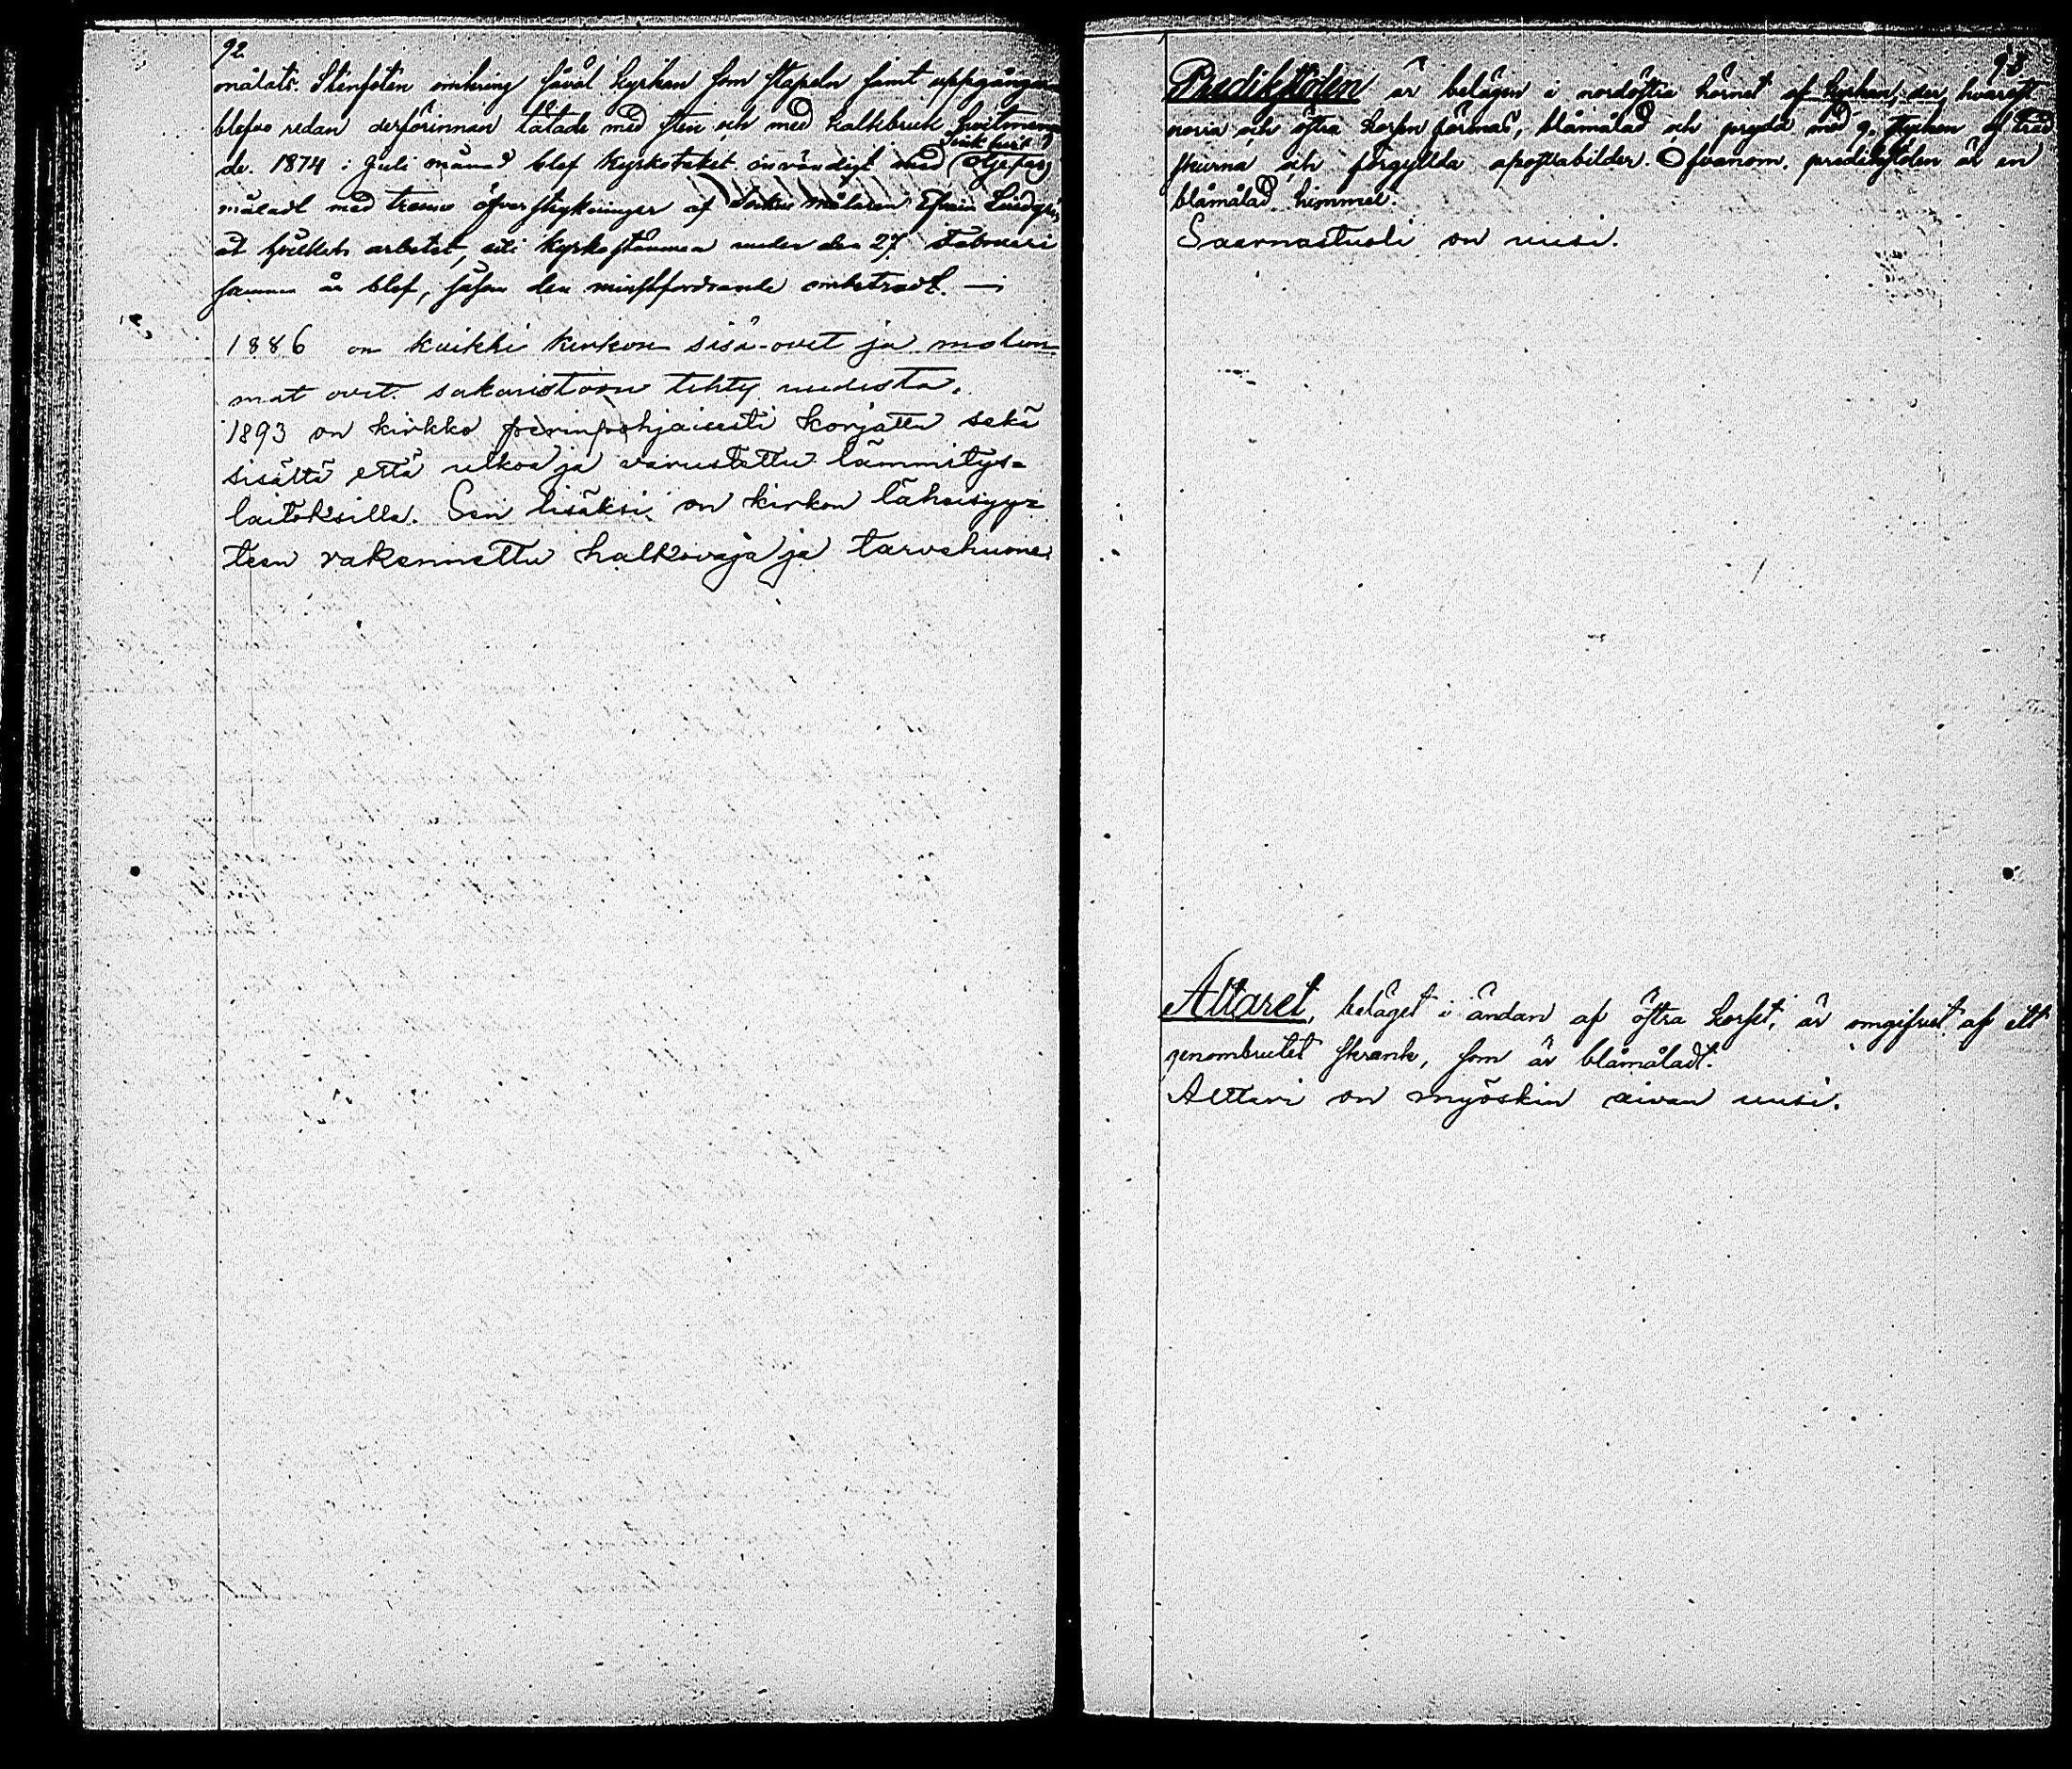 92
målats. Stenfoten omkring såväl kyrkan som stapeln samt uppgångar
blefvo redan derförinnan tätade med sten och med kalkbruk hvitmena
de. 1874 i Juli månad blef kyrkotaket utvändigt med oljefärg
måladt med trenne öfverstrykningar af målaren Efraim Lindqvist
åt hvilken arbetet, vid kyrkostämma under den 27 Februari
samma år blef, såsom den minstfordrande ombetrodt. —
1886 on kaikki kirkon sisä-ovet ja molem-
mat ovet sakaristoon tehty uudesta.
1893 on kirkko perinpohjaisesti korjattu sekä
sisältä että ulkoa ja varustettu lämmitys-
laitoksilla. Sen lisäksi on kirkon läheisyy-
teen rakennettu halkovaja ja tarvehuone.
93
Predikstolen är belägen i nordöstra hörnet af kyrkan, der hvarest
norra och östra korsen förenas, blåmålad och prydd med 9. stycken af träd
skurna och förgyllda apostlabilder. Ofvanom predikstolen är en
blåmålad himmel.
Saarnastuoli on uusi.
Altaret, beläget i ändan af östra korset, är omgifvet af ett
genombrutet skrank, som är blåmåladt.
Alttari on myöskin aivan uusi.